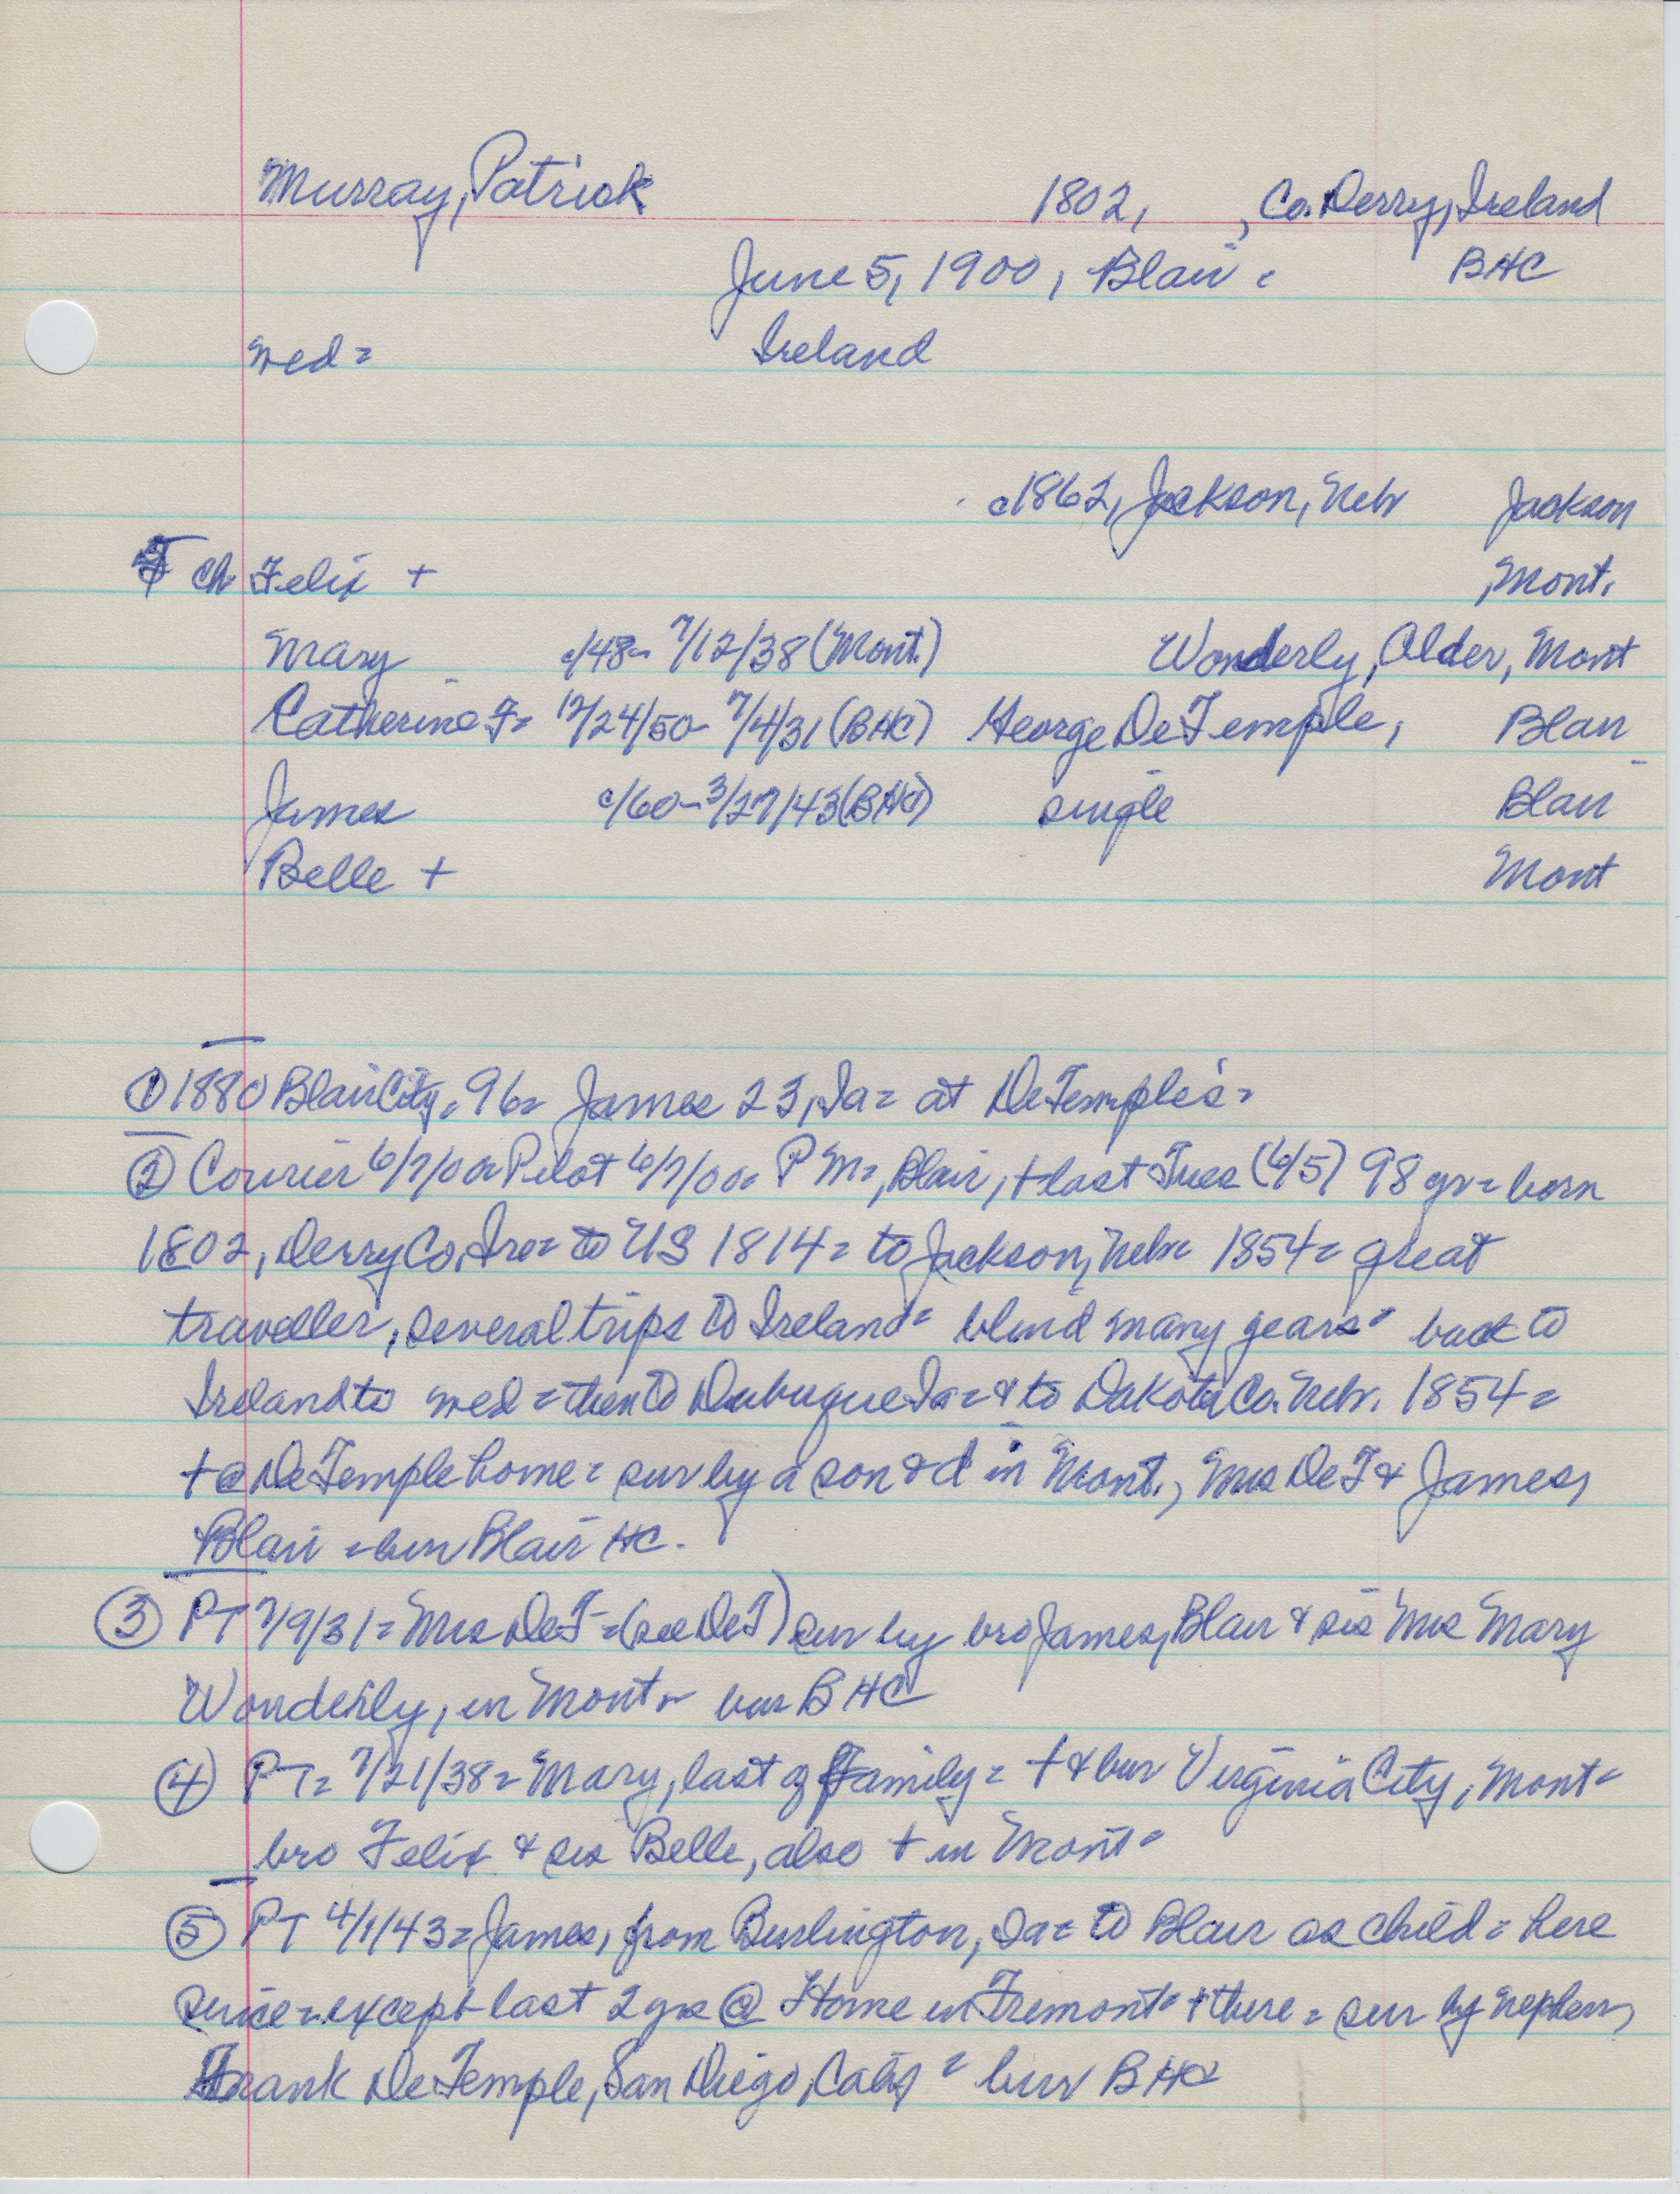 Murray, Patrick 1802, , Co. Derry, Ireland
June 5, 1900, Blair = BHC
med = Ireland
c1862, Jackson, Nebr Jackson
5 ch Felix + Mont.
Mary c/48- 7/12/38 (Mont.) Wonderly, Alder, Mont
Catherine F= 12/24/50- 7/4/31 (BHC) George DeTemple, Blair
James c/60-3/27/43 (BHC) single Blair
Belle + Mont
① 1880 Blair City, 96= James 23, Ia= at DeTemple's=
② Courier 6/7/00 Pilot 6/7/00= P M=, Blair, + last Tues (6/5) 98 yr= born
1802, Derry Co, Ire= to US 1814= to Jackson, Nebr 1854= great
traveller, several trips to Ireland= blind many years= back to
Ireland to med= then to Dubuque Ia= & to Dakota Co. Nebr. 1854=
+ @ DeTemple home= sur by a son & d in Mont., Mrs DeT & James,
Blair = bur Blair HC.
③ PT 7/9/31= Mrs DeT= (see DeT) sur by bro James, Blair & sis Mrs Mary
Wonderly, in Mont= bur BHC
④ PT= 7/21/38= Mary, last of family= + & bur Virginia City, Mont=
bro Felix & sis Belle, also + in Mont=
⑤ PT 4/1/43= James, from Burlington, Ia= to Blair as child= here
since= except last 2 yrs @ Home in Fremont= + there= sur by nephew,
Frank DeTemple, San Diego, Calif= bur BHC